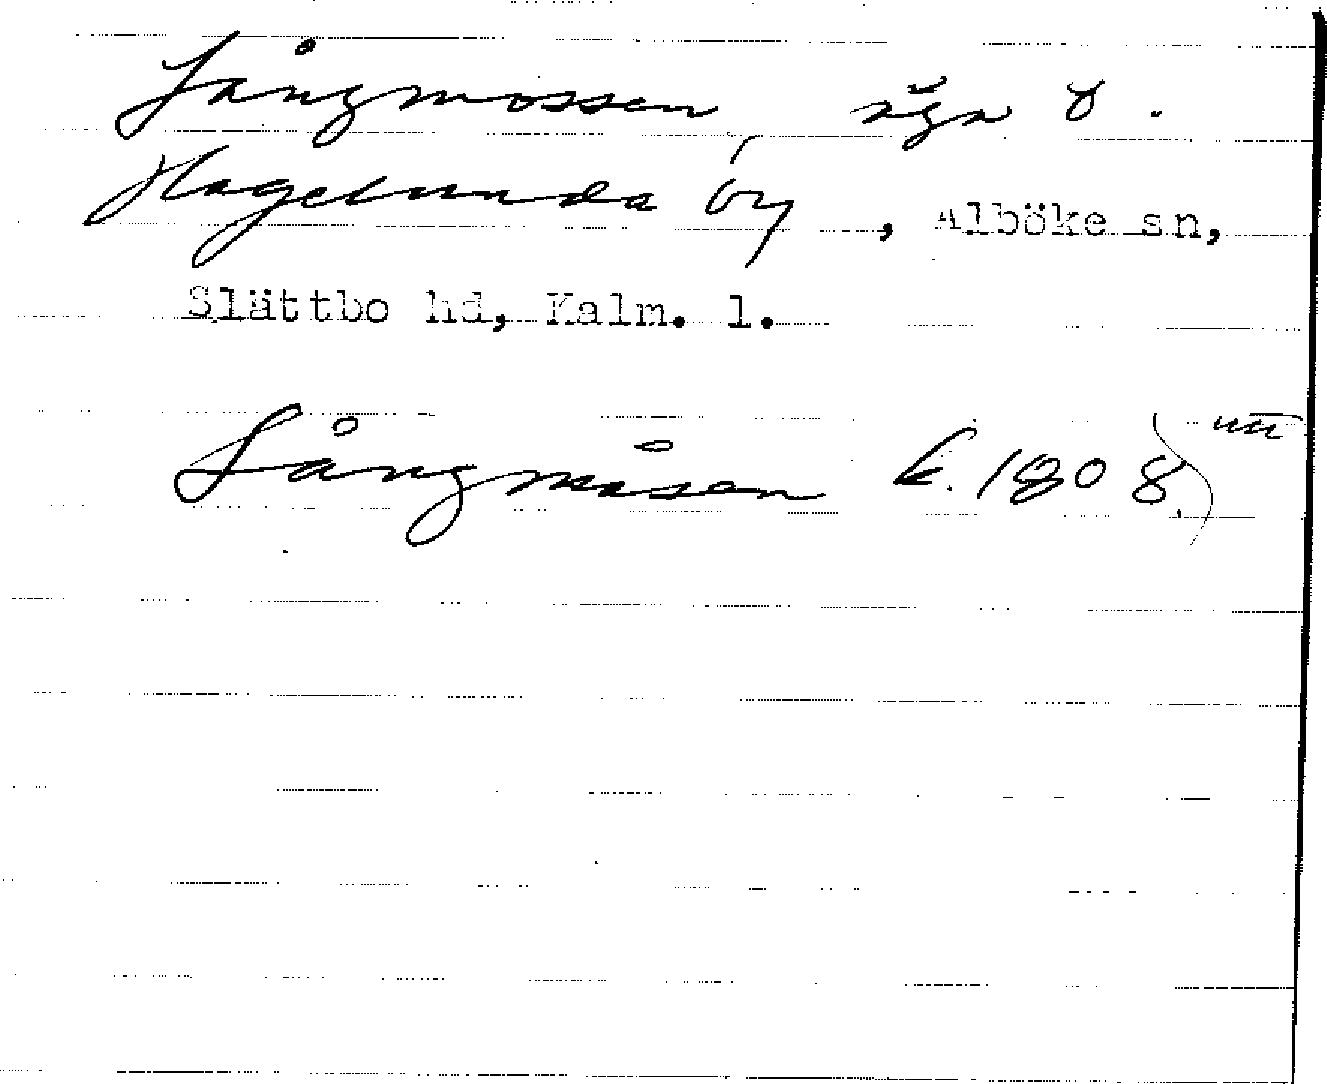 Långmossen, äga t.
Hagelunda by, Alböke sn,
Slättbo hd, Kalm. l.
Långmåsen k. 1808.